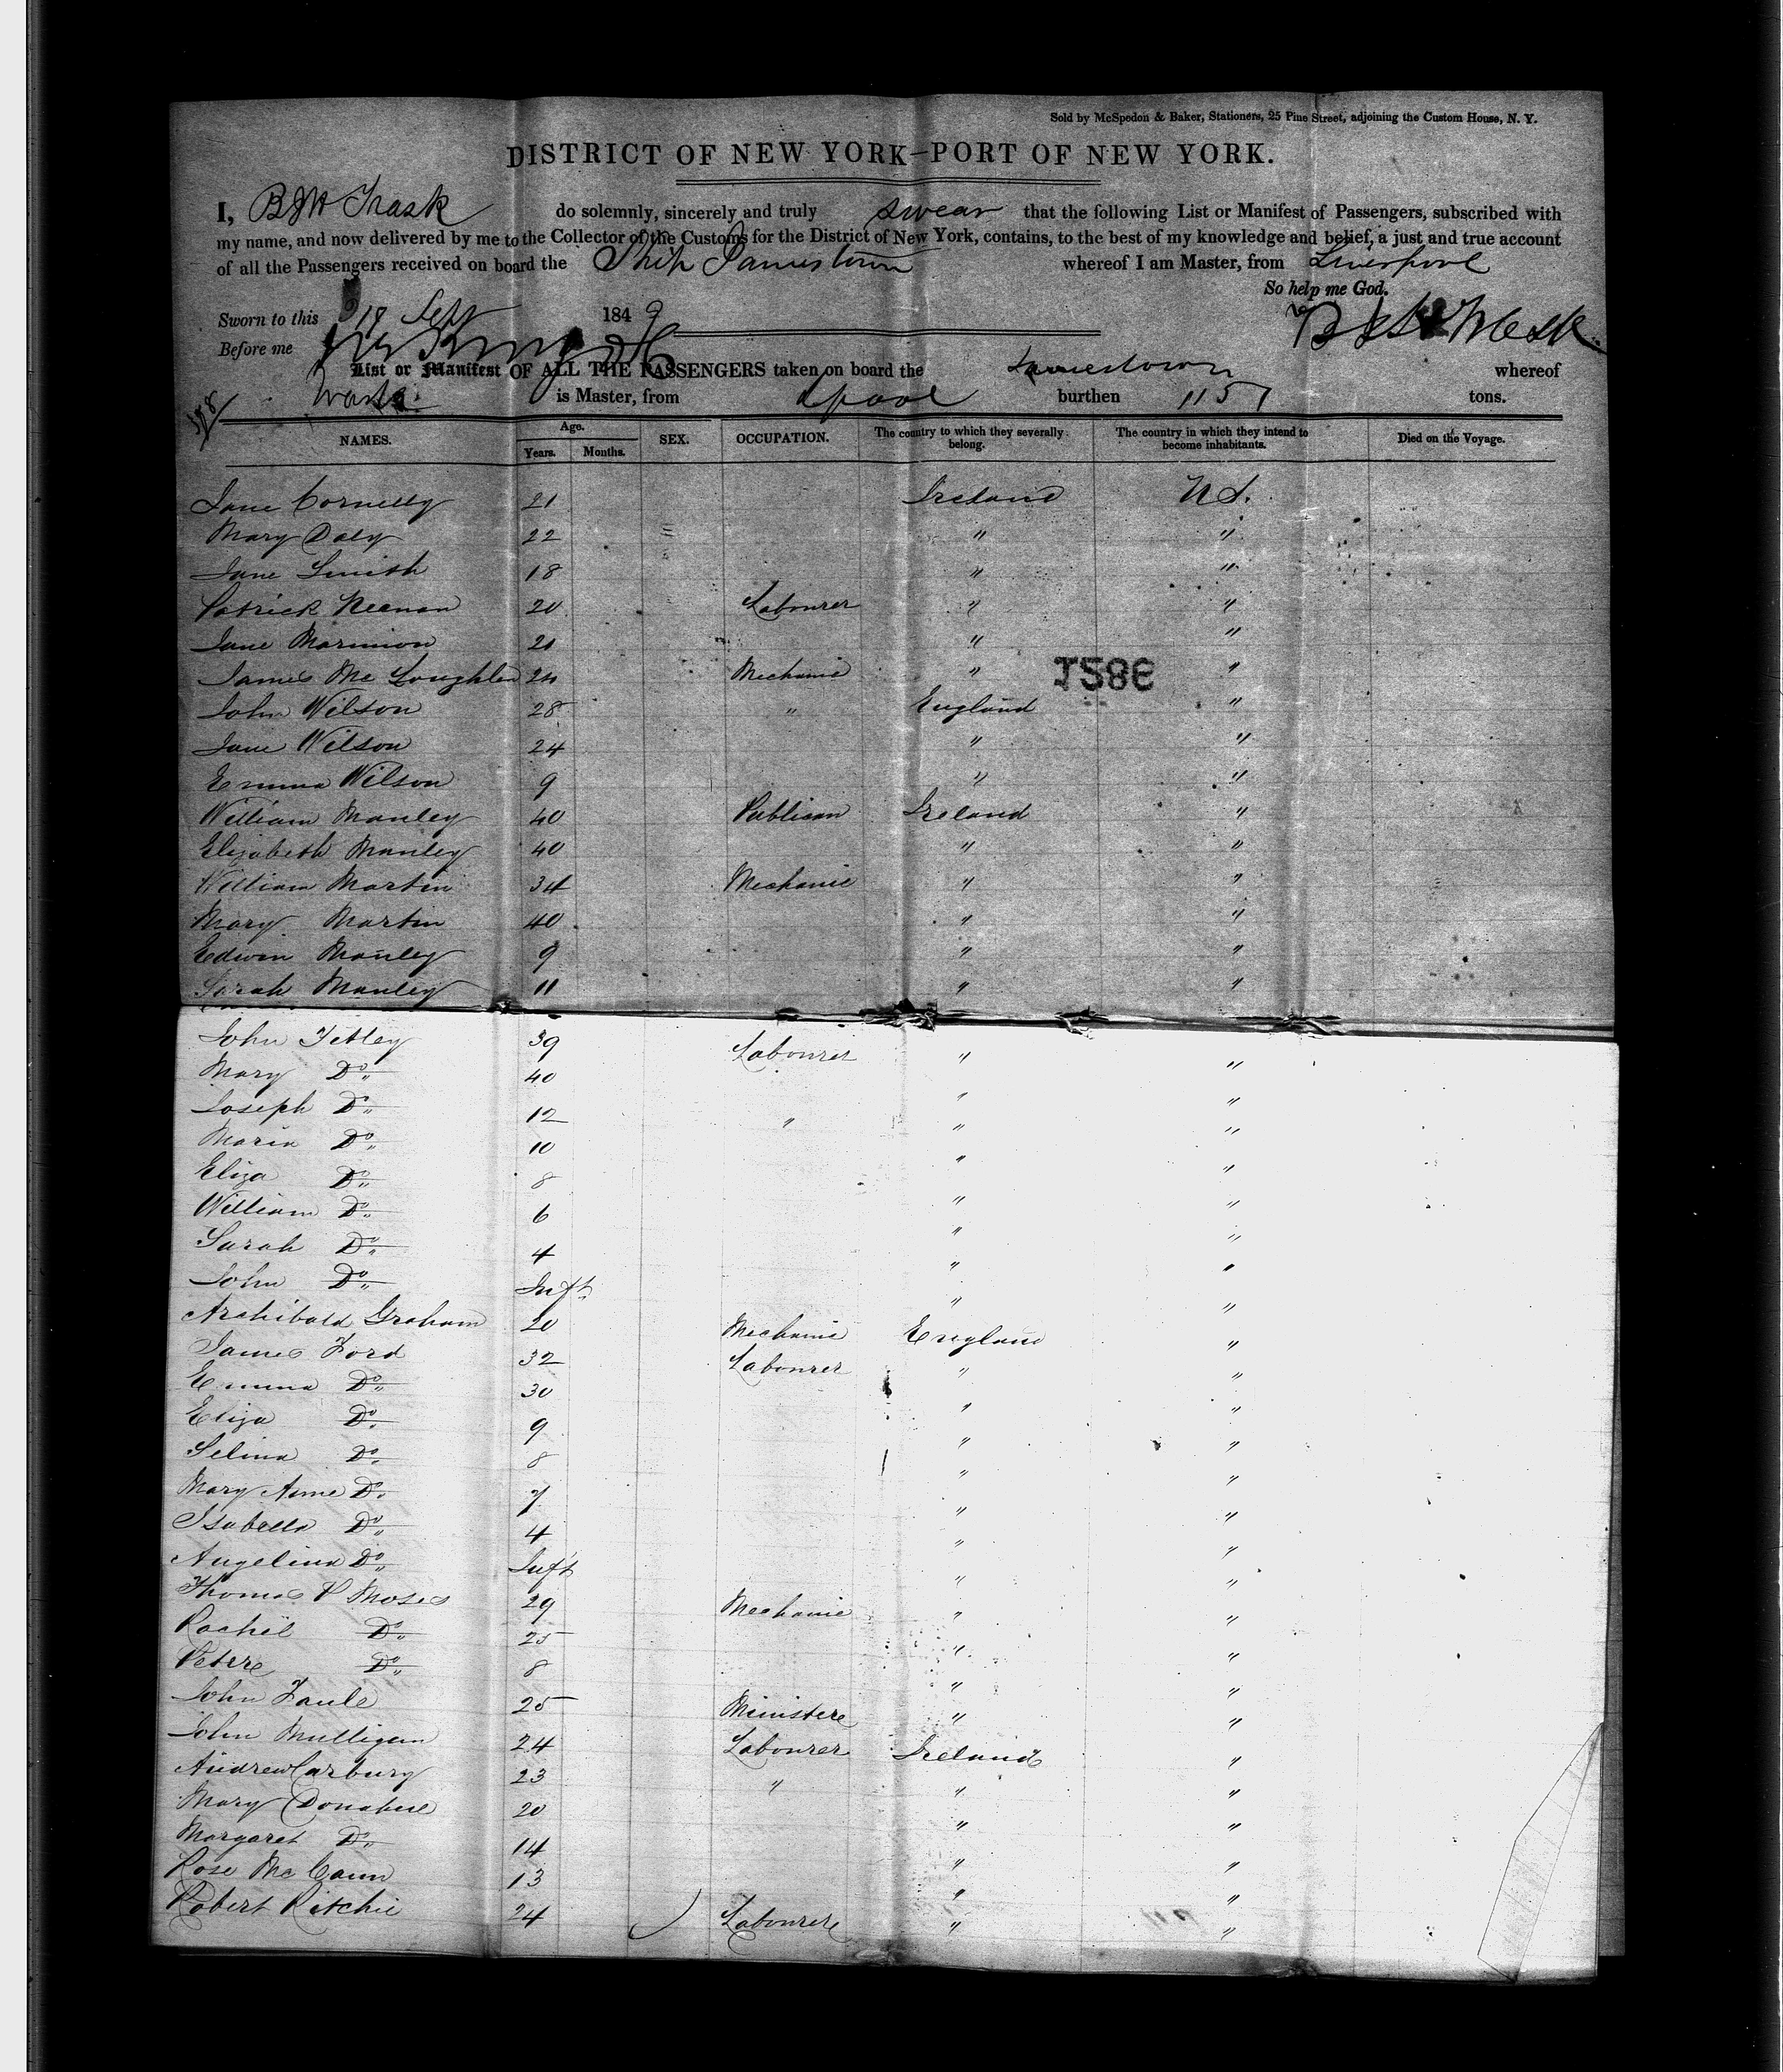 Sold by McSpedon & Baker, Stationers, 25 Pine Street, adjoining the Custom House, N. Y.
DISTRICT OF NEW YORK—PORT OF NEW YORK.
I, Trask do solemnly, sincerely and truly swear that the following List or Manifest of Passengers, subscribed with
my name, and now delivered by me to the Collector of the Customs for the District of New York, contains, to the best of my knowledge and belief, a just and true account
of all the Passengers received on board the Ship Jamestown whereof I am Master, from Liverpool
So help me God.
Sworn to this 18 Sept 1849
Before me
List or Manifest OF ALL THE PASSENGERS taken on board the Jamestown whereof
is Master, from Lpool burthen 1151 tons.
NAMES. Age. Years. Months. SEX. OCCUPATION. The country to which they severally belong. The country in which they intend to become inhabitants. Died on the Voyage.
Jane Connelly 21 Ireland U S.
Mary Daly 22 " "
Jane Smith 18 " "
Patrick Keenan 20 Labourer " "
Jane Marmion 20 " "
James Mc Loughlen 24 Mechanic " "
John Wilson 28 " England "
Jane Wilson 24 " "
Emma Wilson 9 " "
William Manley 40 Publican Ireland "
Elizabeth Manley 40 " "
William Martin 34 Mechanic " "
Mary Martin 40 " "
Edwin Manley 9 " "
Sarah Manley 11 " "
John Tetley 39 Labourer " "
Mary Do 40 " "
Joseph Do 12 " " "
Maria Do 10 " "
Eliza Do 8 " "
William Do 6 " "
Sarah Do 4 " "
John Do Inft " "
Archibald Graham 20 Mechanic England "
James Ford 32 Labourer " "
Emma Do 30 " "
Eliza Do 9 " "
Selina Do 8 " "
Mary Anne Do 7 " "
Isabella Do 4 " "
Angelina Do Inft " "
Thomas P Moses 29 Mechanic " "
Rachel Do 25 " "
Peter Do 8 " "
John 25 Minister " "
John Mulligan 24 Labourer Ireland "
Andrew Carbury 23 " " "
Mary Donahue 20 " "
Margaret Do 14 " "
Rose Mc Cann 13 " "
Robert Ritchie 24 Labourer " "